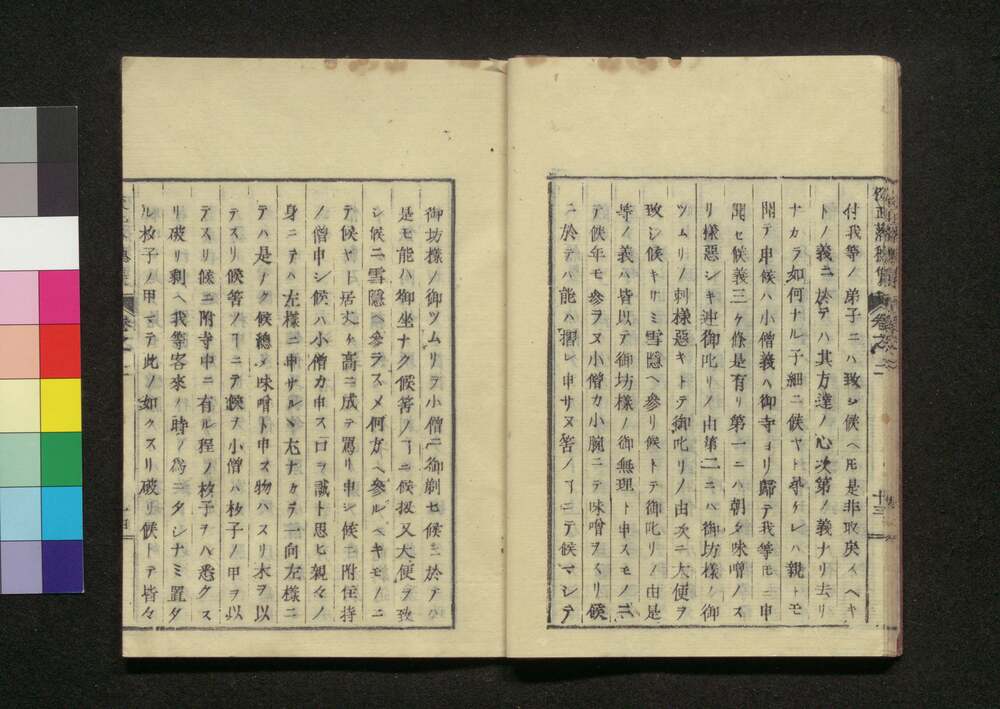 付我等ノ弟子ニハ致シ候ヘ𪜈是非取戾スヘキ
トノ義ニ於テハ其方達ノ心次第ノ義ナリ去リ
ナカラ如何ナル子細ニ候ヤト尋ケレハ親トモ
聞テ申候ハ小僧義ヘ御寺ヨリ歸テ我等モニ申
聞セ候義三ケ條是有リ第一ニハ朝夕味噌ノス
リ樣惡シキ迚御叱リノ由第二ニハ御坊樣ノ御
ツムリノ剃樣惡キトテ御叱リノ由次ニ大便ヲ
致シ候キリミ雪隠ヘ參リ候トテ御叱リノ由是
等ノ義ハ皆以テ御坊樣ノ御無理ト申スモノニ
テ候年モ參ラヌ小僧カ小腕ニテ味噌ヲスリ候
ニ於テハ能ハ摺レ申サヌ筈ノヿニテ候マシテ
十三
御坊樣ノ御ツムリヲ小僧ニ御剃セ候ニ於テハ
是モ能ハ御坐ナク候筈ノヿニ候扨又大便ヲ致
シ候ニ雪隠ヘ參ラスメ何方ヘ參ルヘキモノニ
テ候ヤト居丈ケ高ニ成テ罵リ申シ候ニ附住持
ノ僧申シ候ハ小僧カ申ス口ヲ誠ト思ヒ親々ノ
身ニテハ左樣ニ申サルヽ尤ナカラ一向左樣ニ
テハ是ナク候總メ味噌ト申ス物ハスリ木ヲ以
テスリ候筈ノヿニテ候ヲ小僧ハ杓子ノ甲ヲ以
テスリ候ニ附寺中ニ有ル程ノ杓子ヲハ悉クス
リ破リ剩ヘ我等客來ノ時ノ爲ニタシナミ置タ
ル杓子ノ甲マテ此ノ如クスリ破リ候トテ皆々